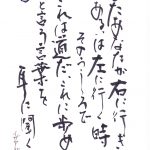 たあなたが右に行き
あるは左に行く時
そのうしろで
これは道だこれに歩め
と言う言葉を
耳に聞く